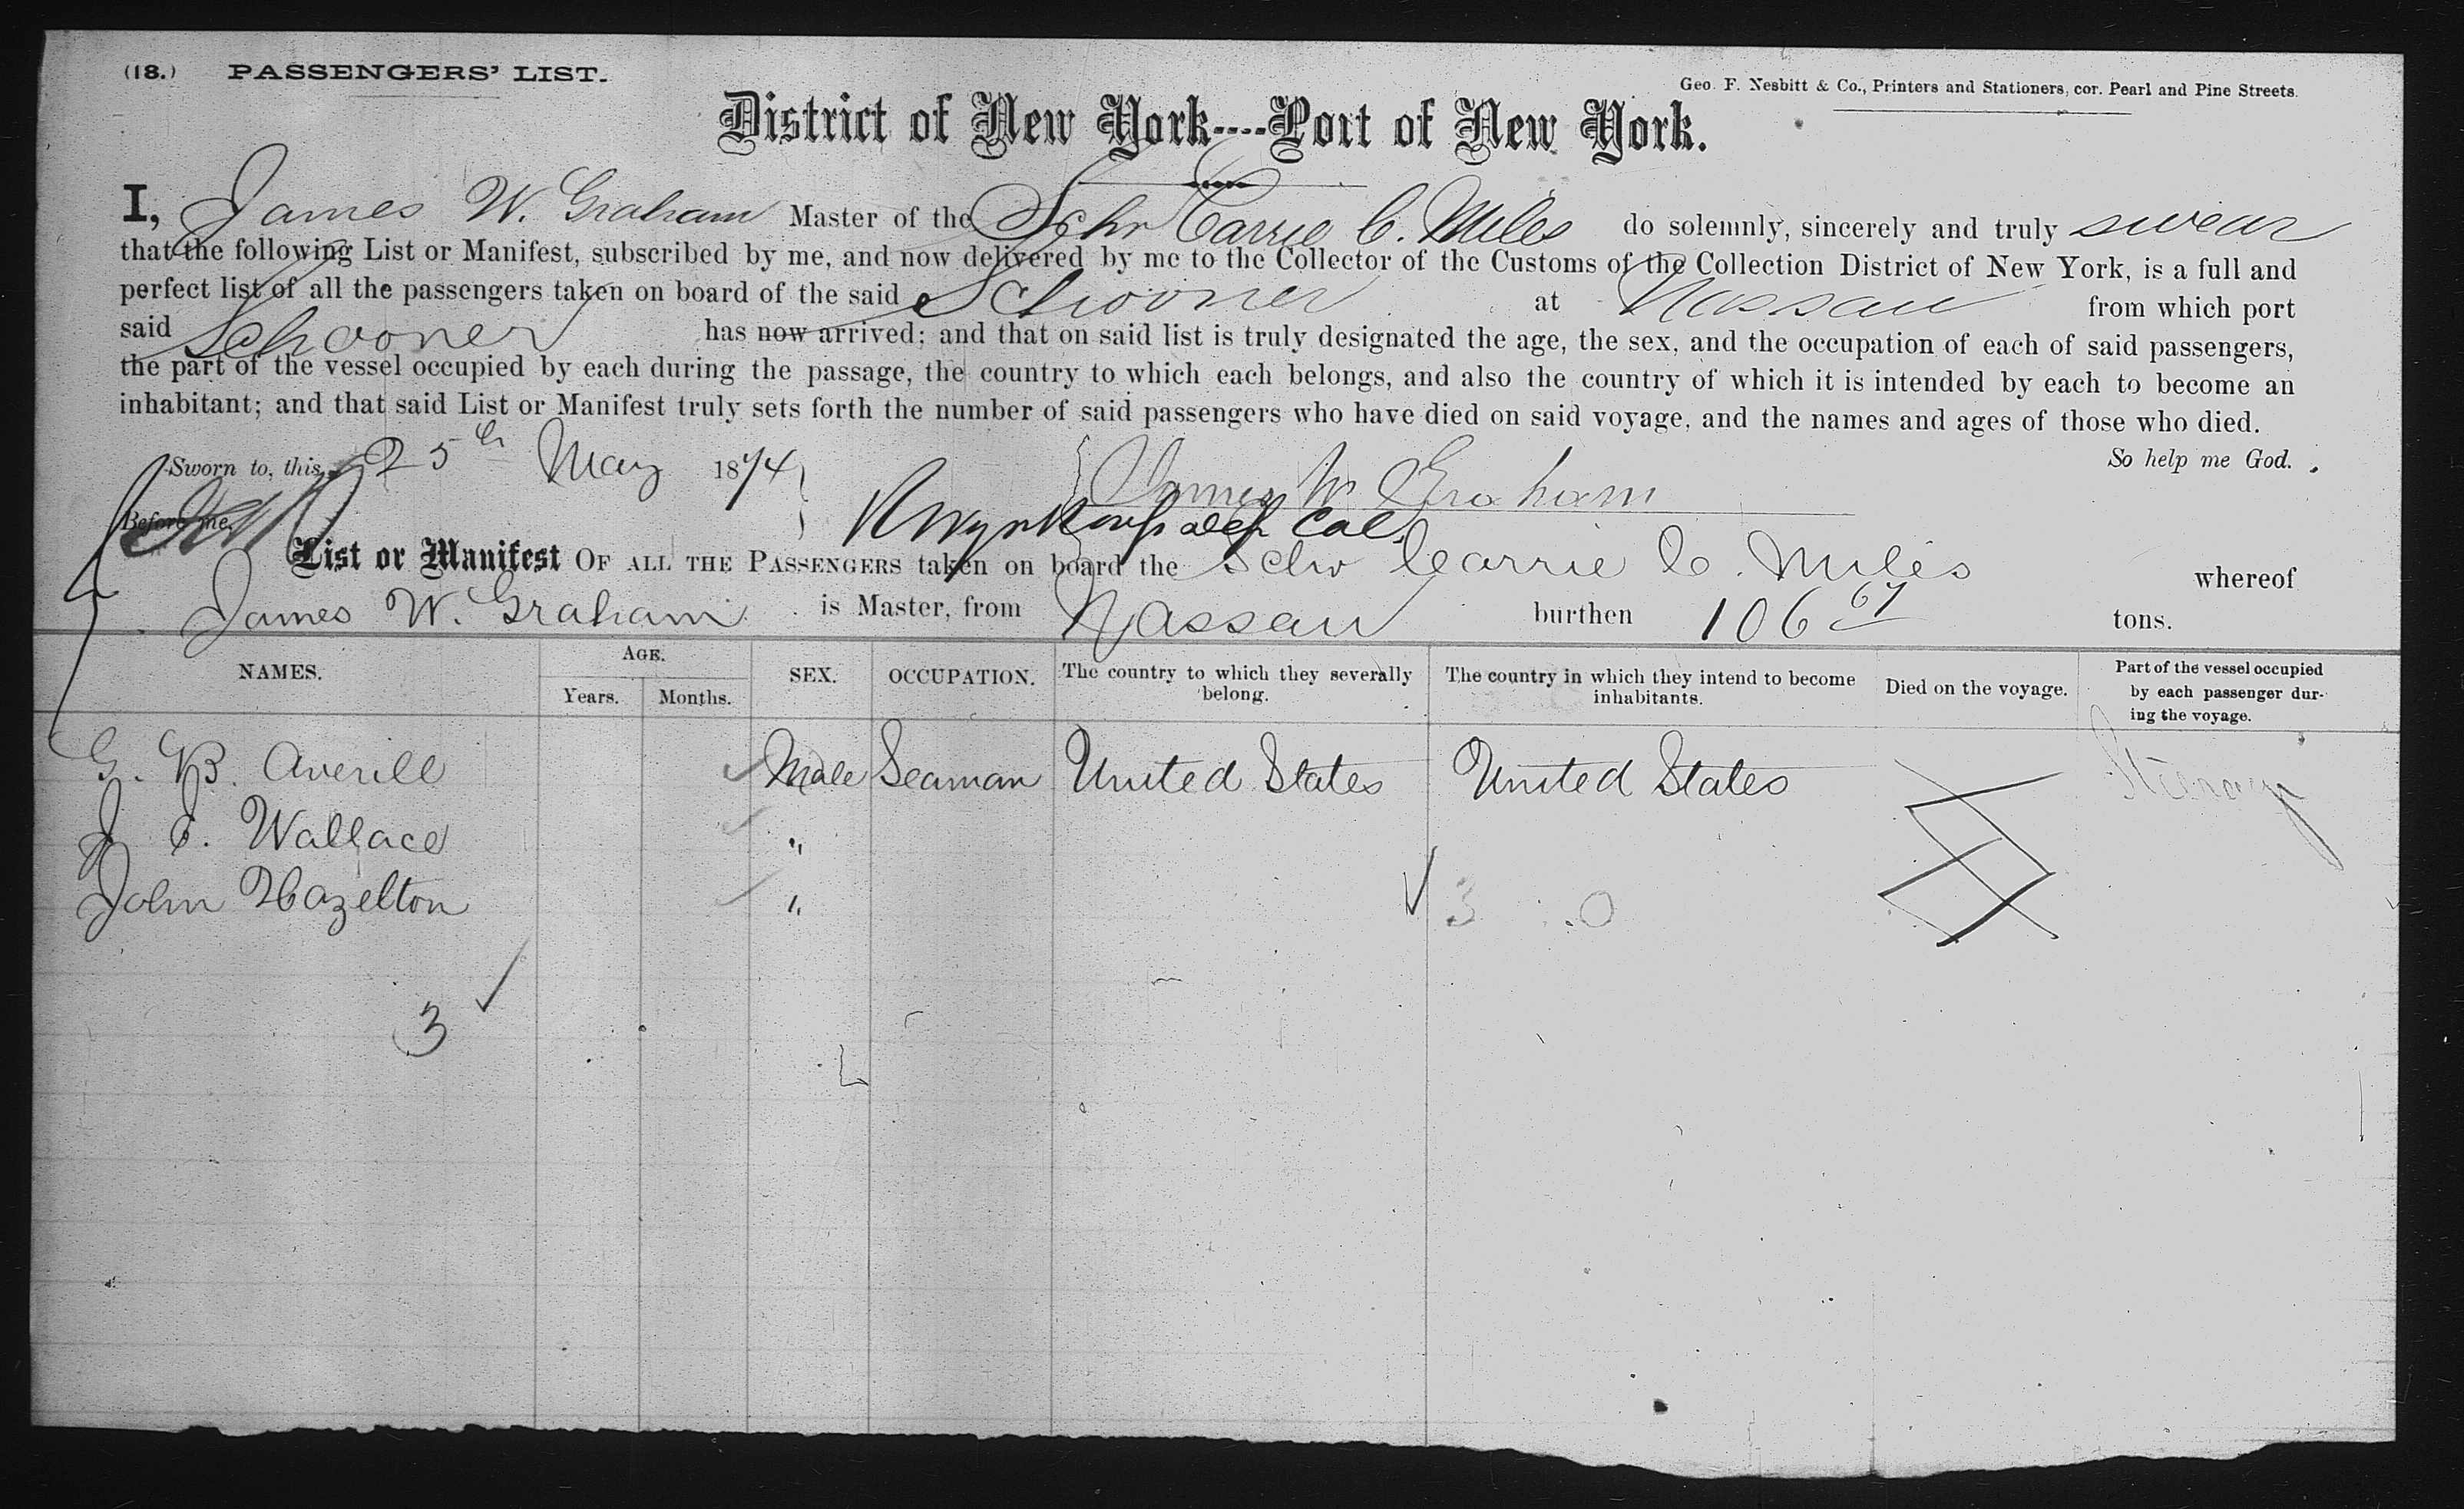 (18.) PASSENGERS' LIST.
Geo. F. Nesbitt & Co., Printers and Stationers, cor. Pearl and Pine Streets.
District of New York----Port of New York.
I, James W. Graham Master of the Schr Carrie C. Miles do solemnly, sincerely and truly swear
that the following List or Manifest, subscribed by me, and now delivered by me to the Collector of the Customs of the Collection District of New York, is a full and
perfect list of all the passengers taken on board of the said Schooner at Nassau from which port
said Schooner has now arrived; and that on said list is truly designated the age, the sex, and the occupation of each of said passengers,
the part of the vessel occupied by each during the passage, the country to which each belongs, and also the country of which it is intended by each to become an
inhabitant; and that said List or Manifest truly sets forth the number of said passengers who have died on said voyage, and the names and ages of those who died.
So help me God.
Sworn to, this 25th May 1874
James W Graham
Before me,
Dep Col
List or Manifest OF ALL THE PASSENGERS taken on board the Schr Carrie C. Miles whereof
James W. Graham is Master, from Nassau burthen 106 67 tons.
NAMES. AGE. Years. Months. SEX. OCCUPATION. The country to which they severally belong. The country in which they intend to become inhabitants. Died on the voyage. Part of the vessel occupied by each passenger during the voyage.
G. B. Averill Male Seaman United States United States
J. C. Wallace "
John Hazelton " 3 0
3